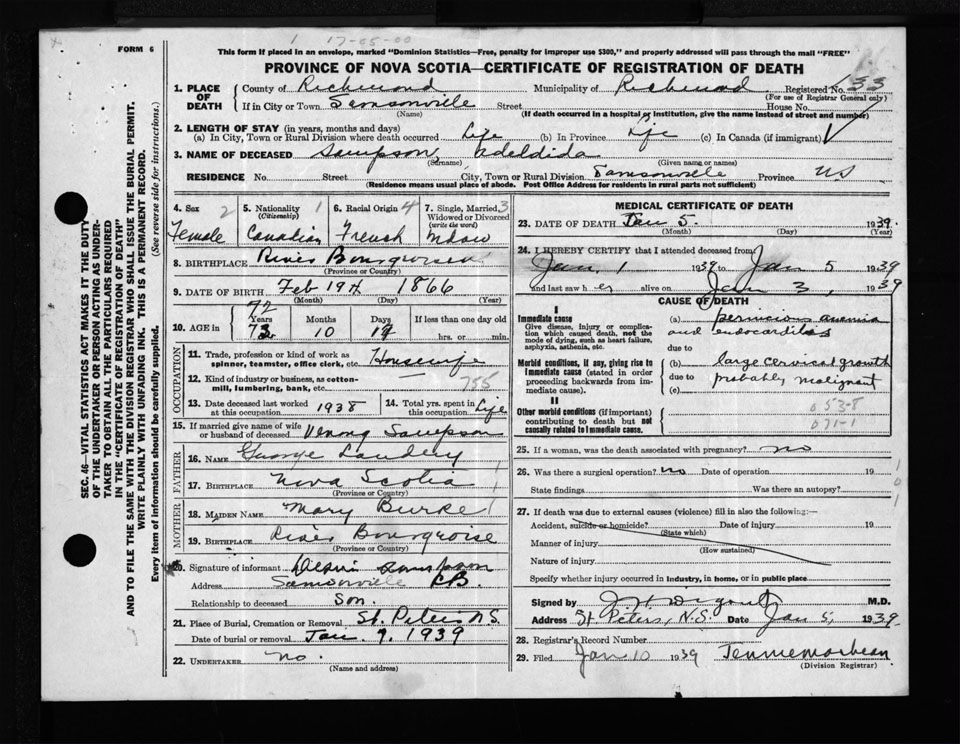 1 17-05-00
FORM 6
This form if placed in an envelope, marked "Dominion Statistics—Free, penalty for improper use $300," and properly addressed will pass through the mail "FREE"
PROVINCE OF NOVA SCOTIA—CERTIFICATE OF REGISTRATION OF DEATH
1. PLACE OF DEATH County of Richmond Municipality of Richmond Registered No. 133
(For use of Registrar General only)
If in City or Town Samsonville Street House No.
(Name) (If death occurred in a hospital or institution, give the name instead of street and number)
2. LENGTH OF STAY (in years, months and days)
(a) In City, Town or Rural Division where death occurred Life (b) In Province Life (c) In Canada (if immigrant)
3. NAME OF DECEASED Sampson, Adeldida
(Surname) (Given name or names)
RESIDENCE No. Street City, Town or Rural Division Samsonville Province NS
(Residence means usual place of abode. Post Office Address for residents in rural parts not sufficient)
4. Sex 2
Female
5. Nationality 1
(Citizenship)
Canadian
6. Racial Origin 4
French
7. Single, Married 3
Widowed or Divorced
(write the word)
Widow
8. BIRTHPLACE River Bourgeoise
(Province or Country)
9. DATE OF BIRTH Feb 19th 1866
(Month) (Day) (Year)
72
10. AGE in Years Months Days If less than one day old
73 10 19 hrs. or min.
OCCUPATION
11. Trade, profession or kind of work as
spinner, teamster, office clerk, etc. Housewife
12. Kind of industry or business, as cotton-
mill, lumbering, bank, etc. — 755
13. Date deceased last worked
at this occupation 1938
14. Total yrs. spent in
this occupation Life
15. If married give name of wife
or husband of deceased Sampson
FATHER
16. NAME George Landry
17. BIRTHPLACE Nova Scotia
(Province or Country)
MOTHER
18. MAIDEN NAME Mary Burke
19. BIRTHPLACE River Bourgeoise
(Province or Country)
20. Signature of informant Sampson
Address Samsonville CB.
Relationship to deceased Son.
21. Place of Burial, Cremation or Removal St. Peters N.S.
Date of burial or removal Jan 9, 1939
22. UNDERTAKER no.
(Name and address)
MEDICAL CERTIFICATE OF DEATH
23. DATE OF DEATH Jan 5. 1939.
(Month) (Day) (Year)
24. I HEREBY CERTIFY that I attended deceased from
Jan 1 1939 to Jan 5 1939
and last saw her alive on Jan 3, 1939
CAUSE OF DEATH
I
Immediate cause
Give disease, injury or complica-
tion which caused death, not the
mode of dying, such as heart failure,
asphyxia, asthenia, etc.
(a) pernicious anemia
and endocarditis
due to
Morbid conditions, if any, giving rise to
Immediate cause (stated in order
proceeding backwards from im-
mediate cause).
(b) large cervical growth
due to probably malignant
(c)
II
Other morbid conditions (if important)
contributing to death but not
causally related to immediate cause.
053-8
071-1
25. If a woman, was the death associated with pregnancy? no
26. Was there a surgical operation? no Date of operation 19
State findings Was there an autopsy?
27. If death was due to external causes (violence) fill in also the following:—
Accident, suicide or homicide? Date of injury 19
(State which)
Manner of injury
(How sustained)
Nature of injury
Specify whether injury occurred in industry, in home, or in public place
Signed by M.D.
Address St. Peters, N.S. Date Jan 5, 1939
28. Registrar's Record Number
29. Filed Jan 10 1939
(Division Registrar)
SEC. 46—VITAL STATISTICS ACT MAKES IT THE DUTY
OF THE UNDERTAKER OR PERSON ACTING AS UNDER-
TAKER TO OBTAIN ALL THE PARTICULARS REQUIRED
IN THE "CERTIFICATE OF REGISTRATION OF DEATH"
AND TO FILE THE SAME WITH THE DIVISION REGISTRAR WHO SHALL ISSUE THE BURIAL PERMIT.
WRITE PLAINLY WITH UNFADING INK. THIS IS A PERMANENT RECORD.
Every item of information should be carefully supplied. (See reverse side for instructions.)